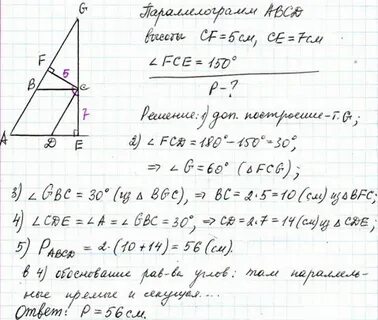 G
Параллелограмм ABCD
высоты CF=5см, CE=7см
∠FCE = 150°
P-?
F
5
B
C
7
A
D
E
Решение: 1) доп. построение - т. G;
2) ∠FCD = 180° - 150° = 30°,
⇒ ∠G = 60° (△FCG);
3) ∠GBC = 30° (из △BGC), ⇒ BC = 2·5 = 10 (см) из △BFC;
4) ∠CDE = ∠A = ∠GBC = 30°, ⇒ CD = 2·7 = 14 (см) из △CDE;
5) P ABCD = 2·(10+14) = 56 (см).
В 4) обоснование рав-ва углов: там параллель-
ные прямые и секущая...
Ответ: P = 56 см.